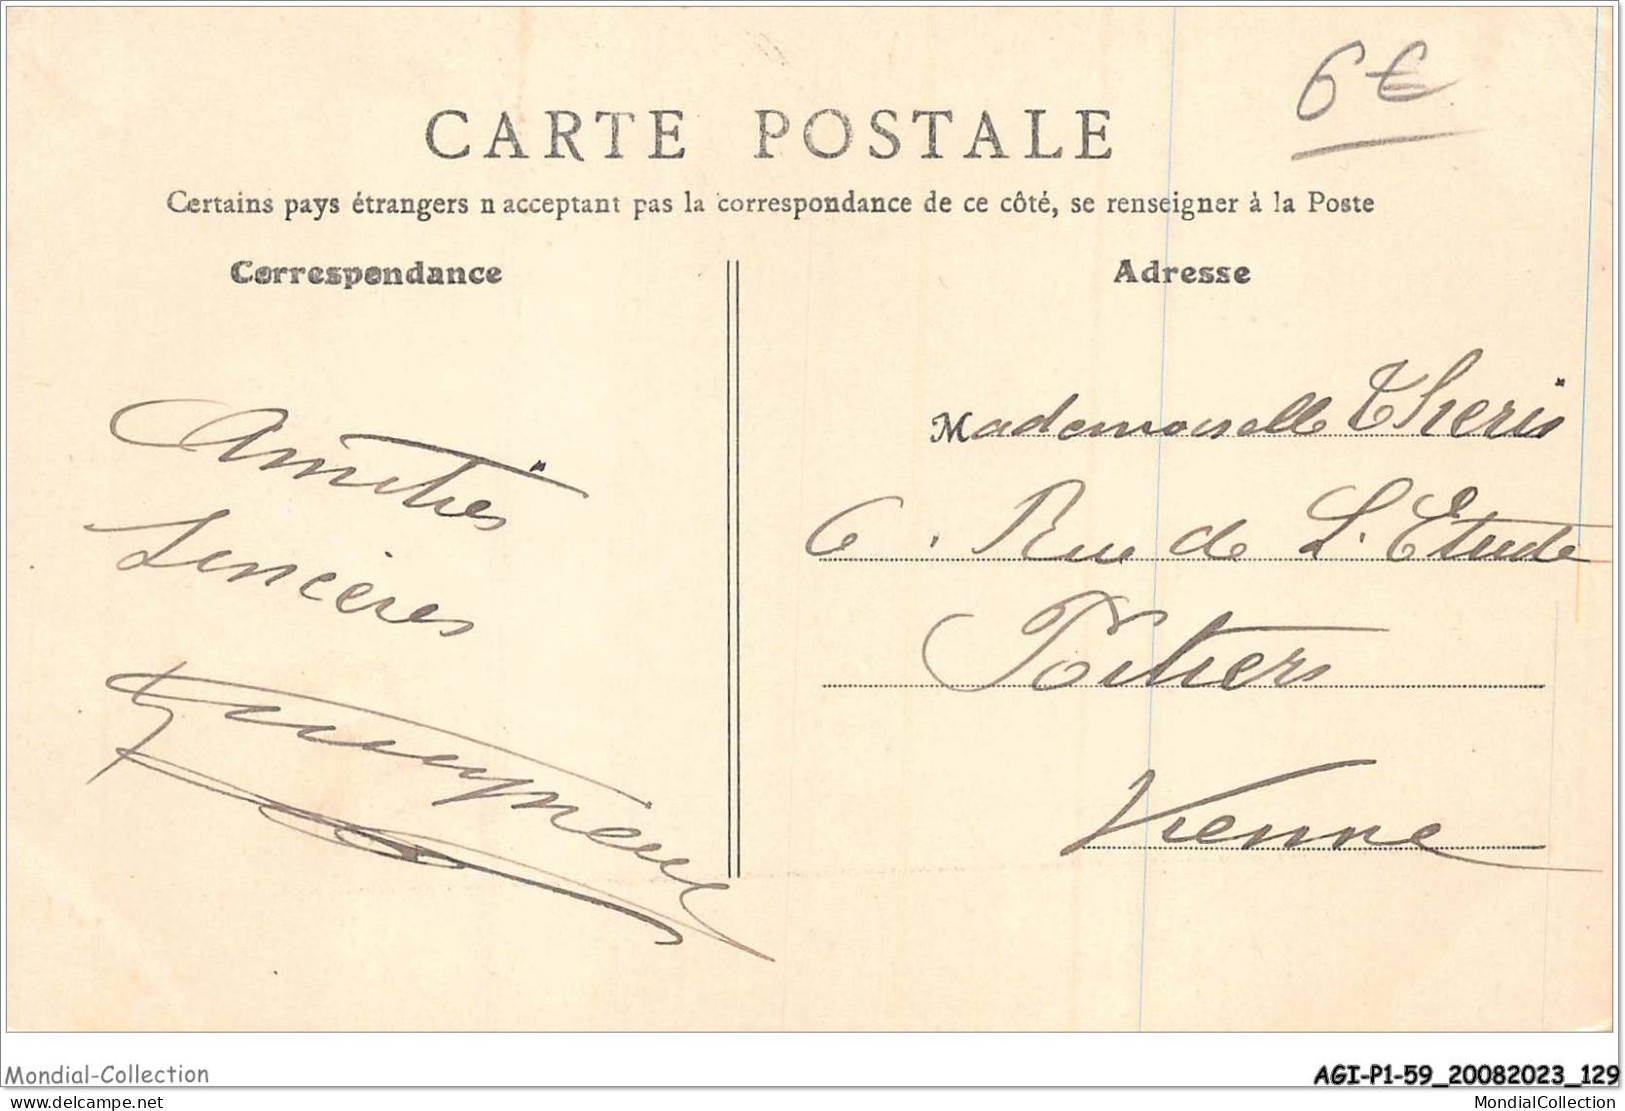 6€
CARTE POSTALE
Certains pays étrangers n acceptant pas la correspondance de ce côté, se renseigner à la Poste
Correspondance
Adresse
Amitiés
Sincères
Mademoiselle Theris
6. Rue de L'Etude
Poitiers
Vienne
Mondial-Collection
AGI-P1-59_20082023_129
delcampe.net
MondialCollection